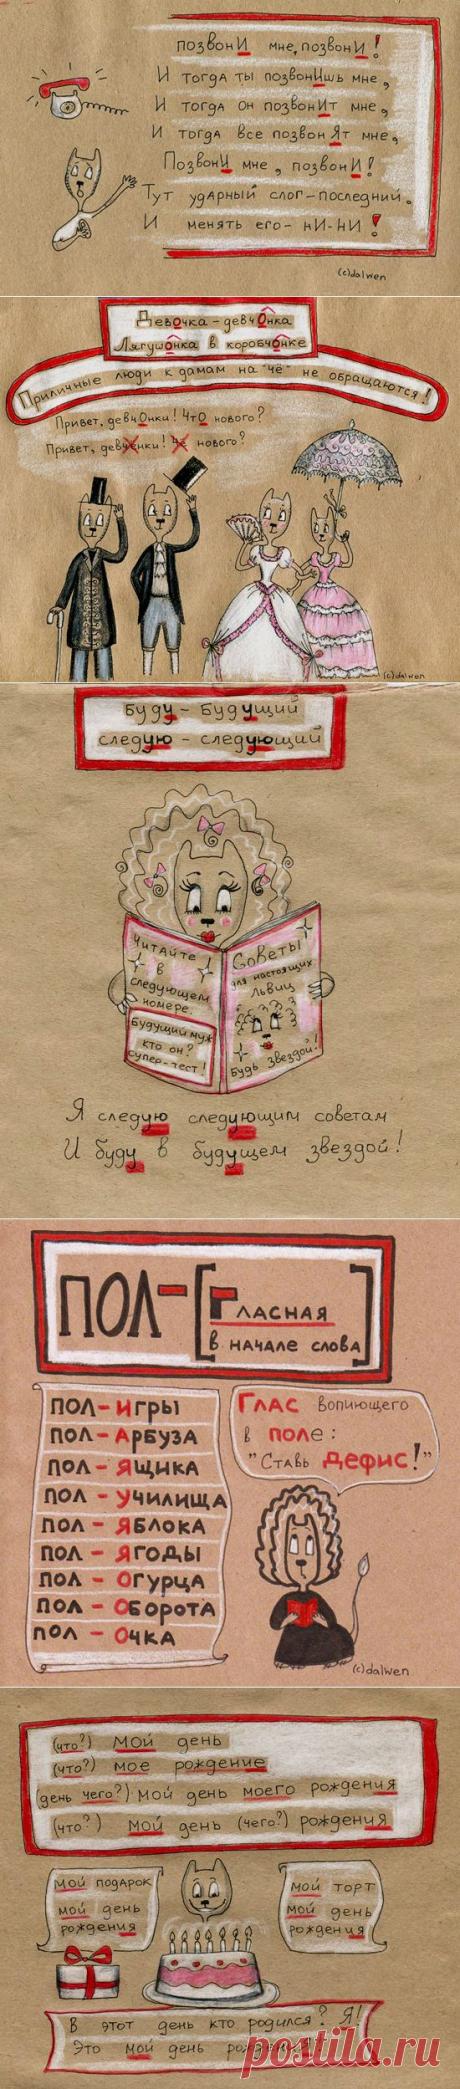 позвонИ мне, позвонИ!
И тогда ты позвонИшь мне,
И тогда он позвонИт мне,
И тогда все позвонЯт мне,
ПозвонИ мне, позвонИ!
Тут ударный слог-последний.
И менять его- нИ-нИ!
(c)dalwen
Девочка - девчОнка
ЛягушОнка в коробчОнке
Приличные люди к дамам на "чё" не обращаются!
Привет, девчОнки! ЧтО нового?
Привет, девчёнки! Чё нового?
(c)dalwen
буду - будущий
следую - следующий
Читайте!
в
следующем
номере.
Будущий муж
кто он?
супер-тест!
Советы
для настоящих
львиц
Будь звездой!
Я следую следующим советам
И буду в будущем звездой!
ПОЛ-[Гласная
в начале слова]
ПОЛ-ИГРЫ
ПОЛ-АРБУЗА
ПОЛ-ЯЩИКА
ПОЛ-УЧИЛИЩА
ПОЛ-ЯБЛОКА
ПОЛ-ЯГОДЫ
ПОЛ-ОГУРЦА
ПОЛ-ОБОРОТА
ПОЛ-ОЧКА
Глас вопиющего
в поле:
"Ставь Дефис!"
(c)dalwen
(что?) мой день
(что?) мое рождение
(день чего?) мой день моего рождения
(что?) мой день (чего?) рождения
мой подарок
мой день
рождения
мой торт
мой день
рождения
В этот день кто родился? Я!
Это мой день рождения!
postila.ru